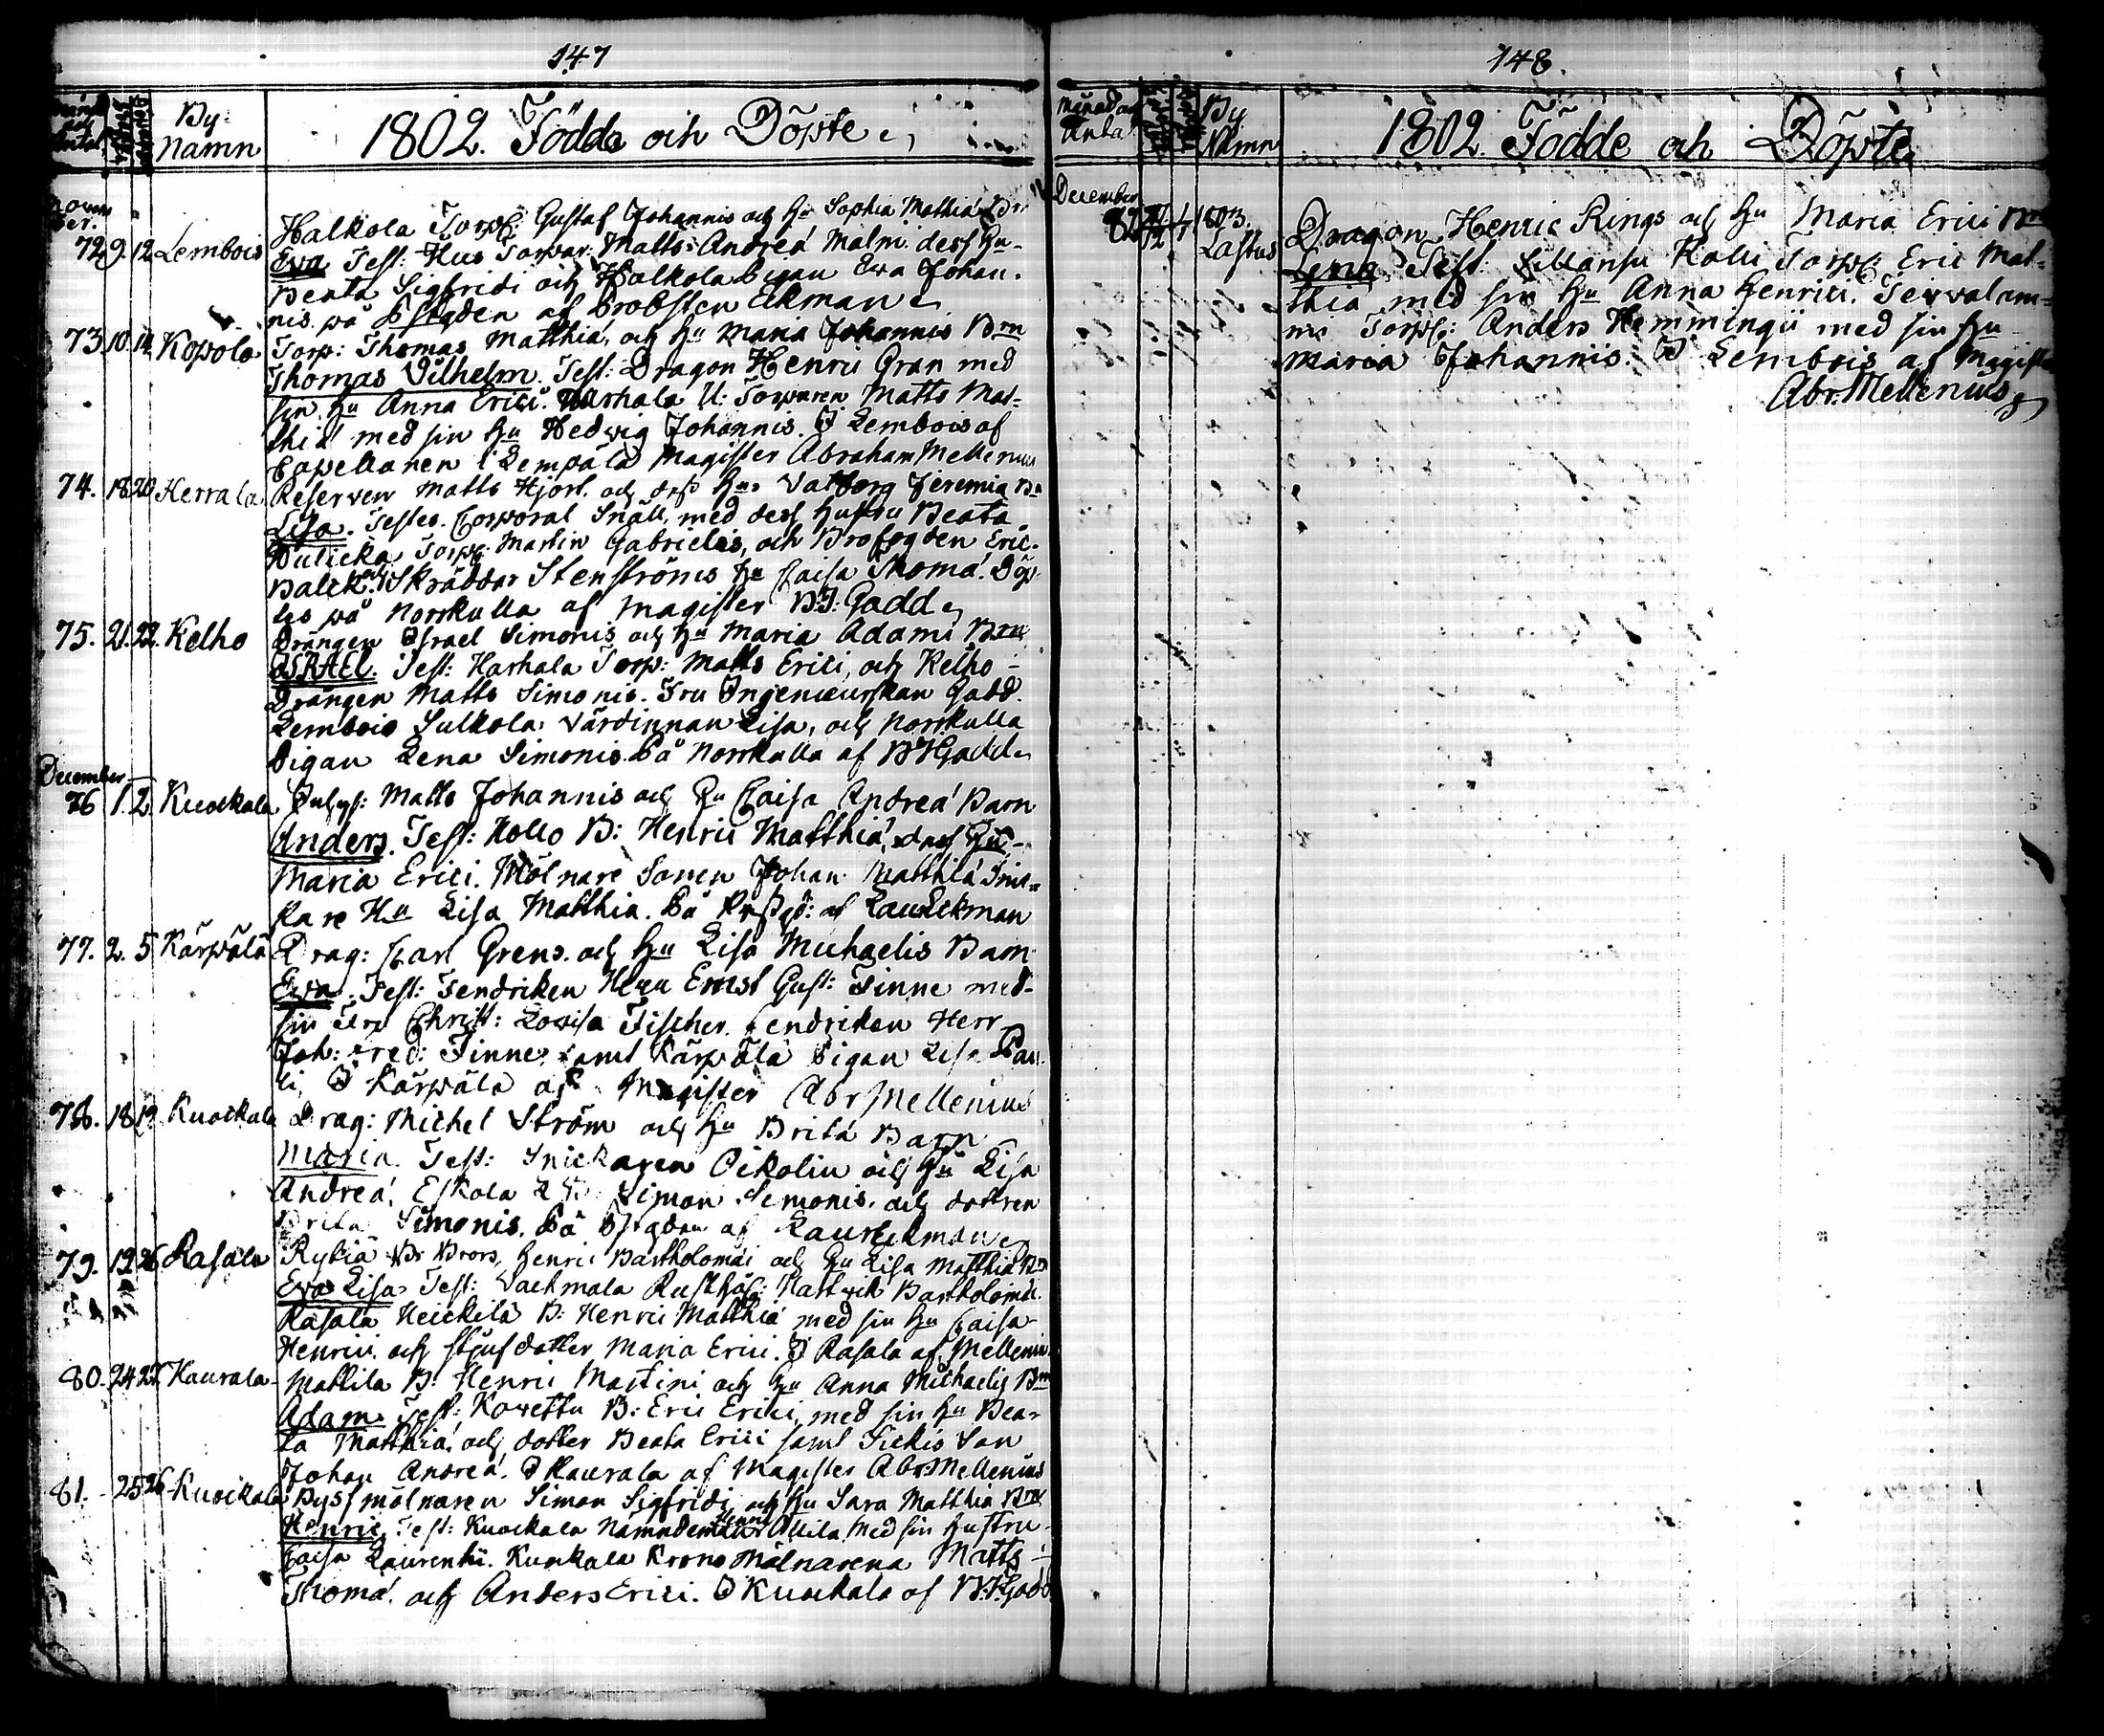 147
By
Namn
1802. Födde och Döpte
Novem
ber.
72. 9. 12 Lembois Halkola Torp: Gustaf Johannis och Hu Sophia Mathiæ Brn
Eva Test: Hus Torpar: Matts Andreæ Malm. dess Hu
Beata Sigfridi och Halkola Pigan Eva Johan-
nis. på Pstgden af Probsten Ekman
73. 10. 14 Kopola Torp: Thomas Matthiæ, och Hu Maria Johannis Brn
Thomas Vilhelm. Test: Dragon Henric Gran med
sin Hu Anna Erici. Harhala U: Torparen Matts Mat-
thiæ med sin Hu Hedvig Johannis. I Lembois af
Capellanen i Lempälä Magister Abraham Mellenius
74. 18 20 Herrala Reserven Matts Hjort. och dess Hu. Valborg Jeremiæ Bn
Lisa. Testes. Corporal Snäll, med dess Hustru Beata
Torp: Martin Gabrielis, och Brofogden Eric
Balck. och Skräddar Stenströms Hu Caisa Thomæ. Döp-
tes på Norrkulla af Magister B.J. Gadd
75. 21. 22. Kelho Drängen Israel Simonis och Hu Maria Adami Brn
ISRAEL. Test: Harhala Torp: Matts Erici, och Kelho
Drängen Matts Simonis. Fru Ingenieurskan Gadd.
Lembois Sulkola Värdinnan Lisa, och Norrkulla
Pigan Lena Simonis. På Norrkulla af B J Gadd
December
76 1. 2. Kuockala Inhys: Matts Johannis och Hu Caisa Andreæ Barn
Anders. Test: Hollo B: Henric Matthiæ, dess Hu
Maria Erici. Mölnare Sonen Johan Matthiæ Snic-
kare Hu Lisa Matthiæ. På Prstgd: af Laur Ekman
77. 2. 5 Kärpälä Drag: Carl Grens. och Hu Lisa Michaelis Barn
Eva. Test: Fendriken Herr Ernst Gust: Finne med
sin Fru Christ: Lovisa Fischer. Fendriken Herr
Joh: Fred: Finne samt Kärpälä Pigan Lisa Pau-
li, I Kärpälä af Magister Abr Mellenius
78. 18 19 Kuockala Drag: Michel Ström och Hu Brita Barn
Maria. Test: Snickaren Oikolin och Hu Lisa
Andreæ. Eskola Simon Simonis. och dottren
Brita Simonis. På Pstgden af Laur Ekman
79. 19 26 Rasala Rykiä Br Brors, Henric Bartholomæi och Hu Lisa Matthiæ Brn
Eva Lisa. Test: Vackmala Rusthåll: Hartvik Bartholomæi
Rasala Heickilä B: Henric Matthiæ med sin Hu Caisa
Henrici, och stjufdotter Maria Erici. I Rasala af Mellenius
80. 24 27 Haurala Mattila B: Henric Martini och Hu Anna Michaelis Brn
Adam. Test: Kowettu B: Eric Erici, med sin Hu Bea-
ta Matthiæ, och dotter Beata Erici samt Son
Johan Andreæ. I Haurala af Magister Abr: Mellenius
81. 25 26 Kuockala Pyss mölnaren Simon Sigfridi, och Hu Sara Matthiæ Brn
Henric. Test: Kuockala Nämndeman Henric Ollila Med sin Hustru
Caisa Laurentii. Kuockala Krono Mölnarena Matts
Thomæ. och Anders Erici. I Kuockala af B.J. Gadd
148.
Månad och
Antal
By
Namn
1802. Födde och Döpte
December
82 27/12 1/1 1803. Lastus Dragon Henric Rings och Hu Maria Erici Brn
Lena. Test: Kolli Torp: Eric Mat-
thiæ med sin Hu Anna Henrici. Tervalam-
mi Torp: Anders Hemmingii med sin Hu
Maria Johannis. I Lembois af Magist
Abr: Mellenius